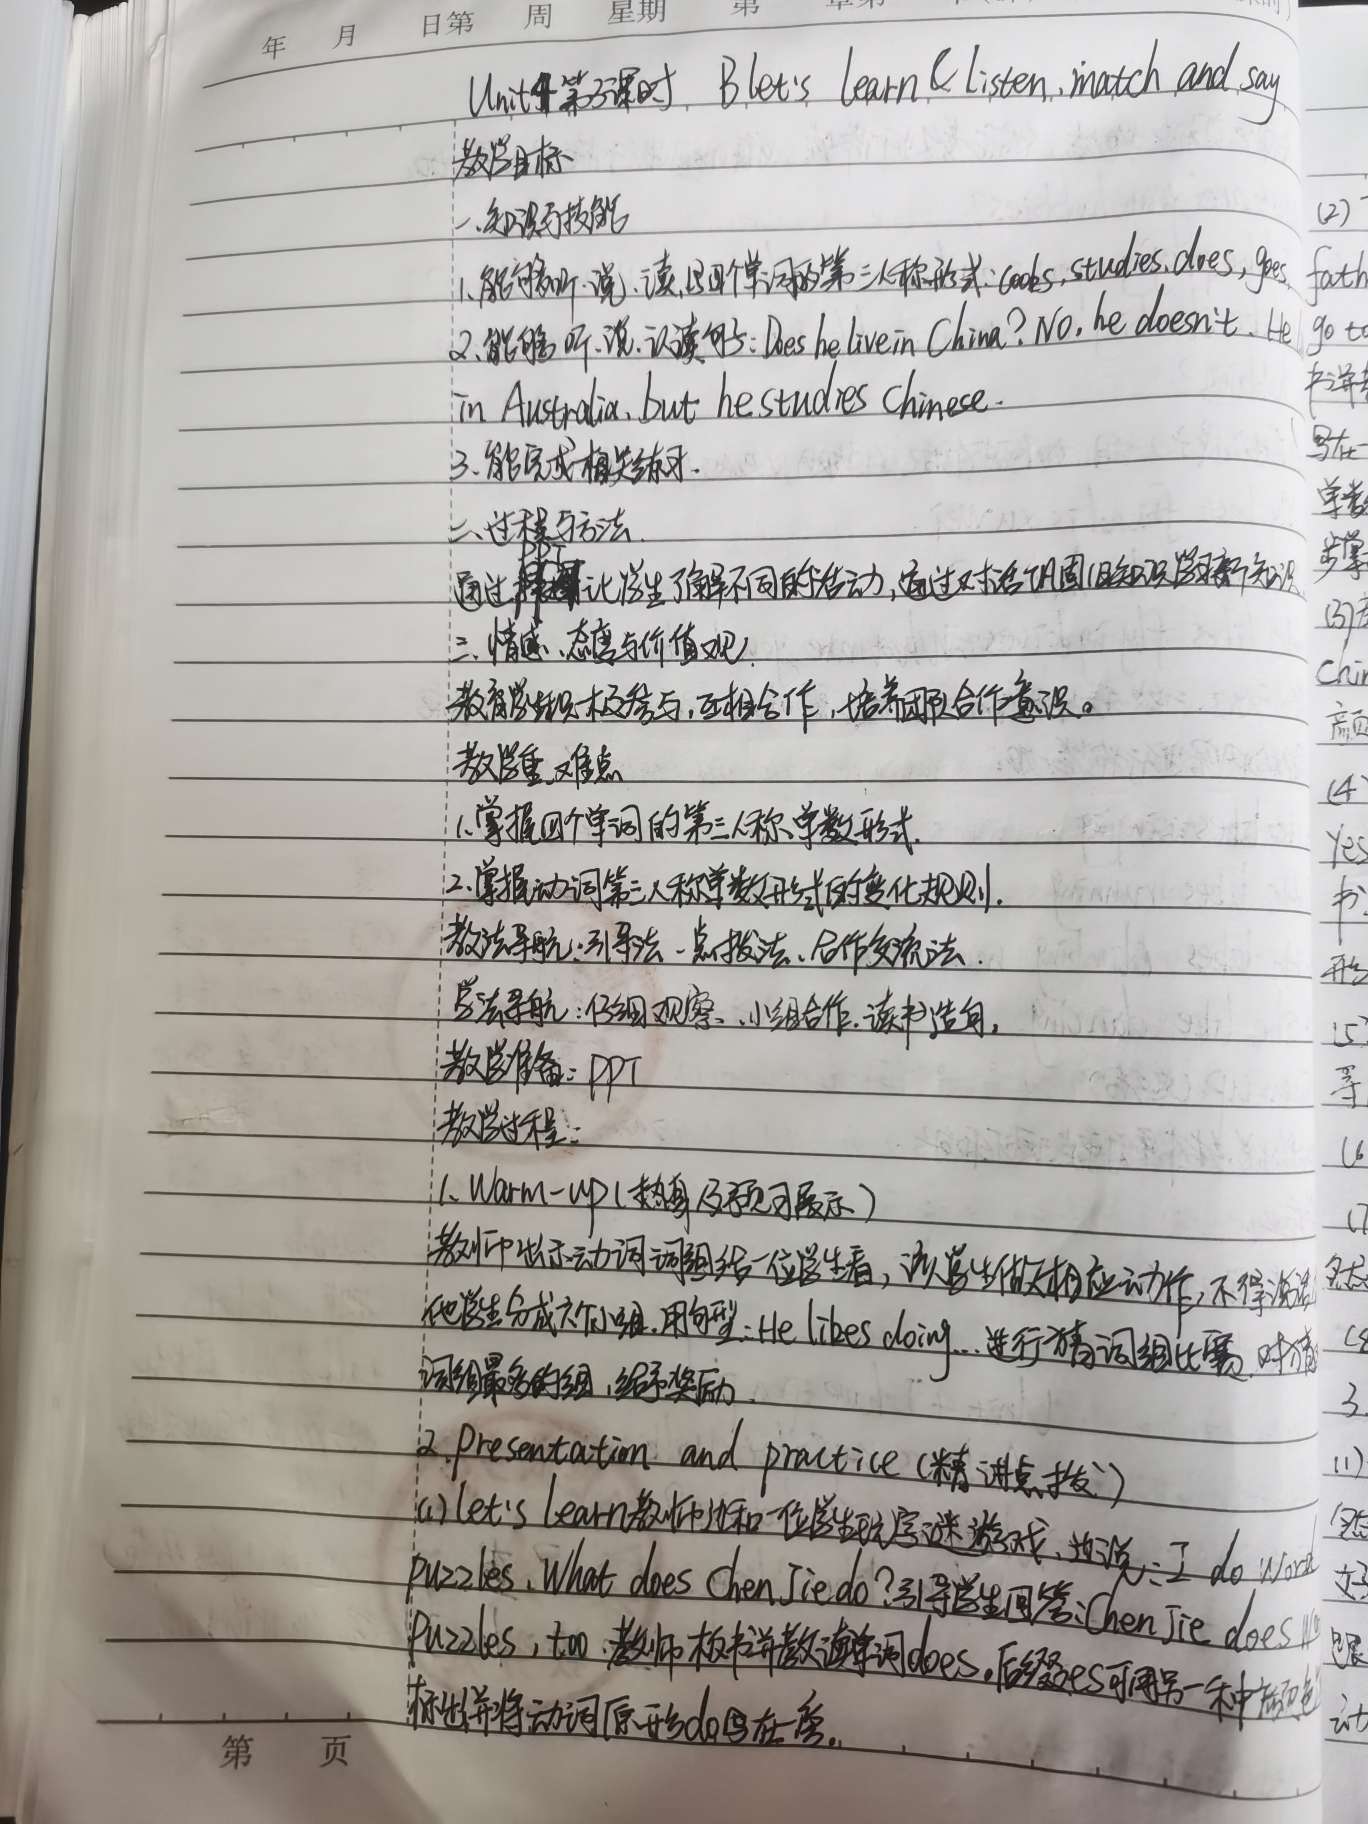 年 月 日第 周 星期 第
Unit4第3课时 B let's learn & listen, match and say
教学目标
一、知识与技能
1.能够听、说、读、写四个单词的第三人称形式: cooks, studies, does, goes.
2.能够听、说、认读句子: Does he live in China? No, he doesn't. He
in Australia, but he studies Chinese.
3.能完成相关练习.
二、过程与方法.
通过PPT让学生了解不同的活动,通过对话巩固旧知识学习新知识
三、情感、态度与价值观.
教育学生积极参与,互相合作,培养团队合作意识。
教学重、难点
1.掌握四个单词的第三人称单数形式.
2.掌握动词第三人称单数形式的变化规则.
教法导航:引导法、点拨法、合作交流法.
学法导航:仔细观察、小组合作、读书造句.
教学准备: PPT
教学过程:
1. Warm-up(热身及预习展示)
教师出示动词词组给一位学生看,该学生做相应动作,不得
他学生分成六个小组.用句型: He likes doing...进行猜词组比赛.
词组最多的组,给予奖励.
2. Presentation and practice (精讲点拨)
(1) let's learn教师和一位学生玩字谜游戏,边说: I do word
puzzles. What does Chen Jie do?引导学生回答: Chen Jie does
puzzles, too.教师板书并教读单词does.后缀es可用另一种颜色
标出并将动词原形do写在一旁.
第 页
(2)
fath
go to
写在一
(3)
Chin
颜
(4)
Yes
书
形
(5)
(6
(7
(8
3.
(1)
动